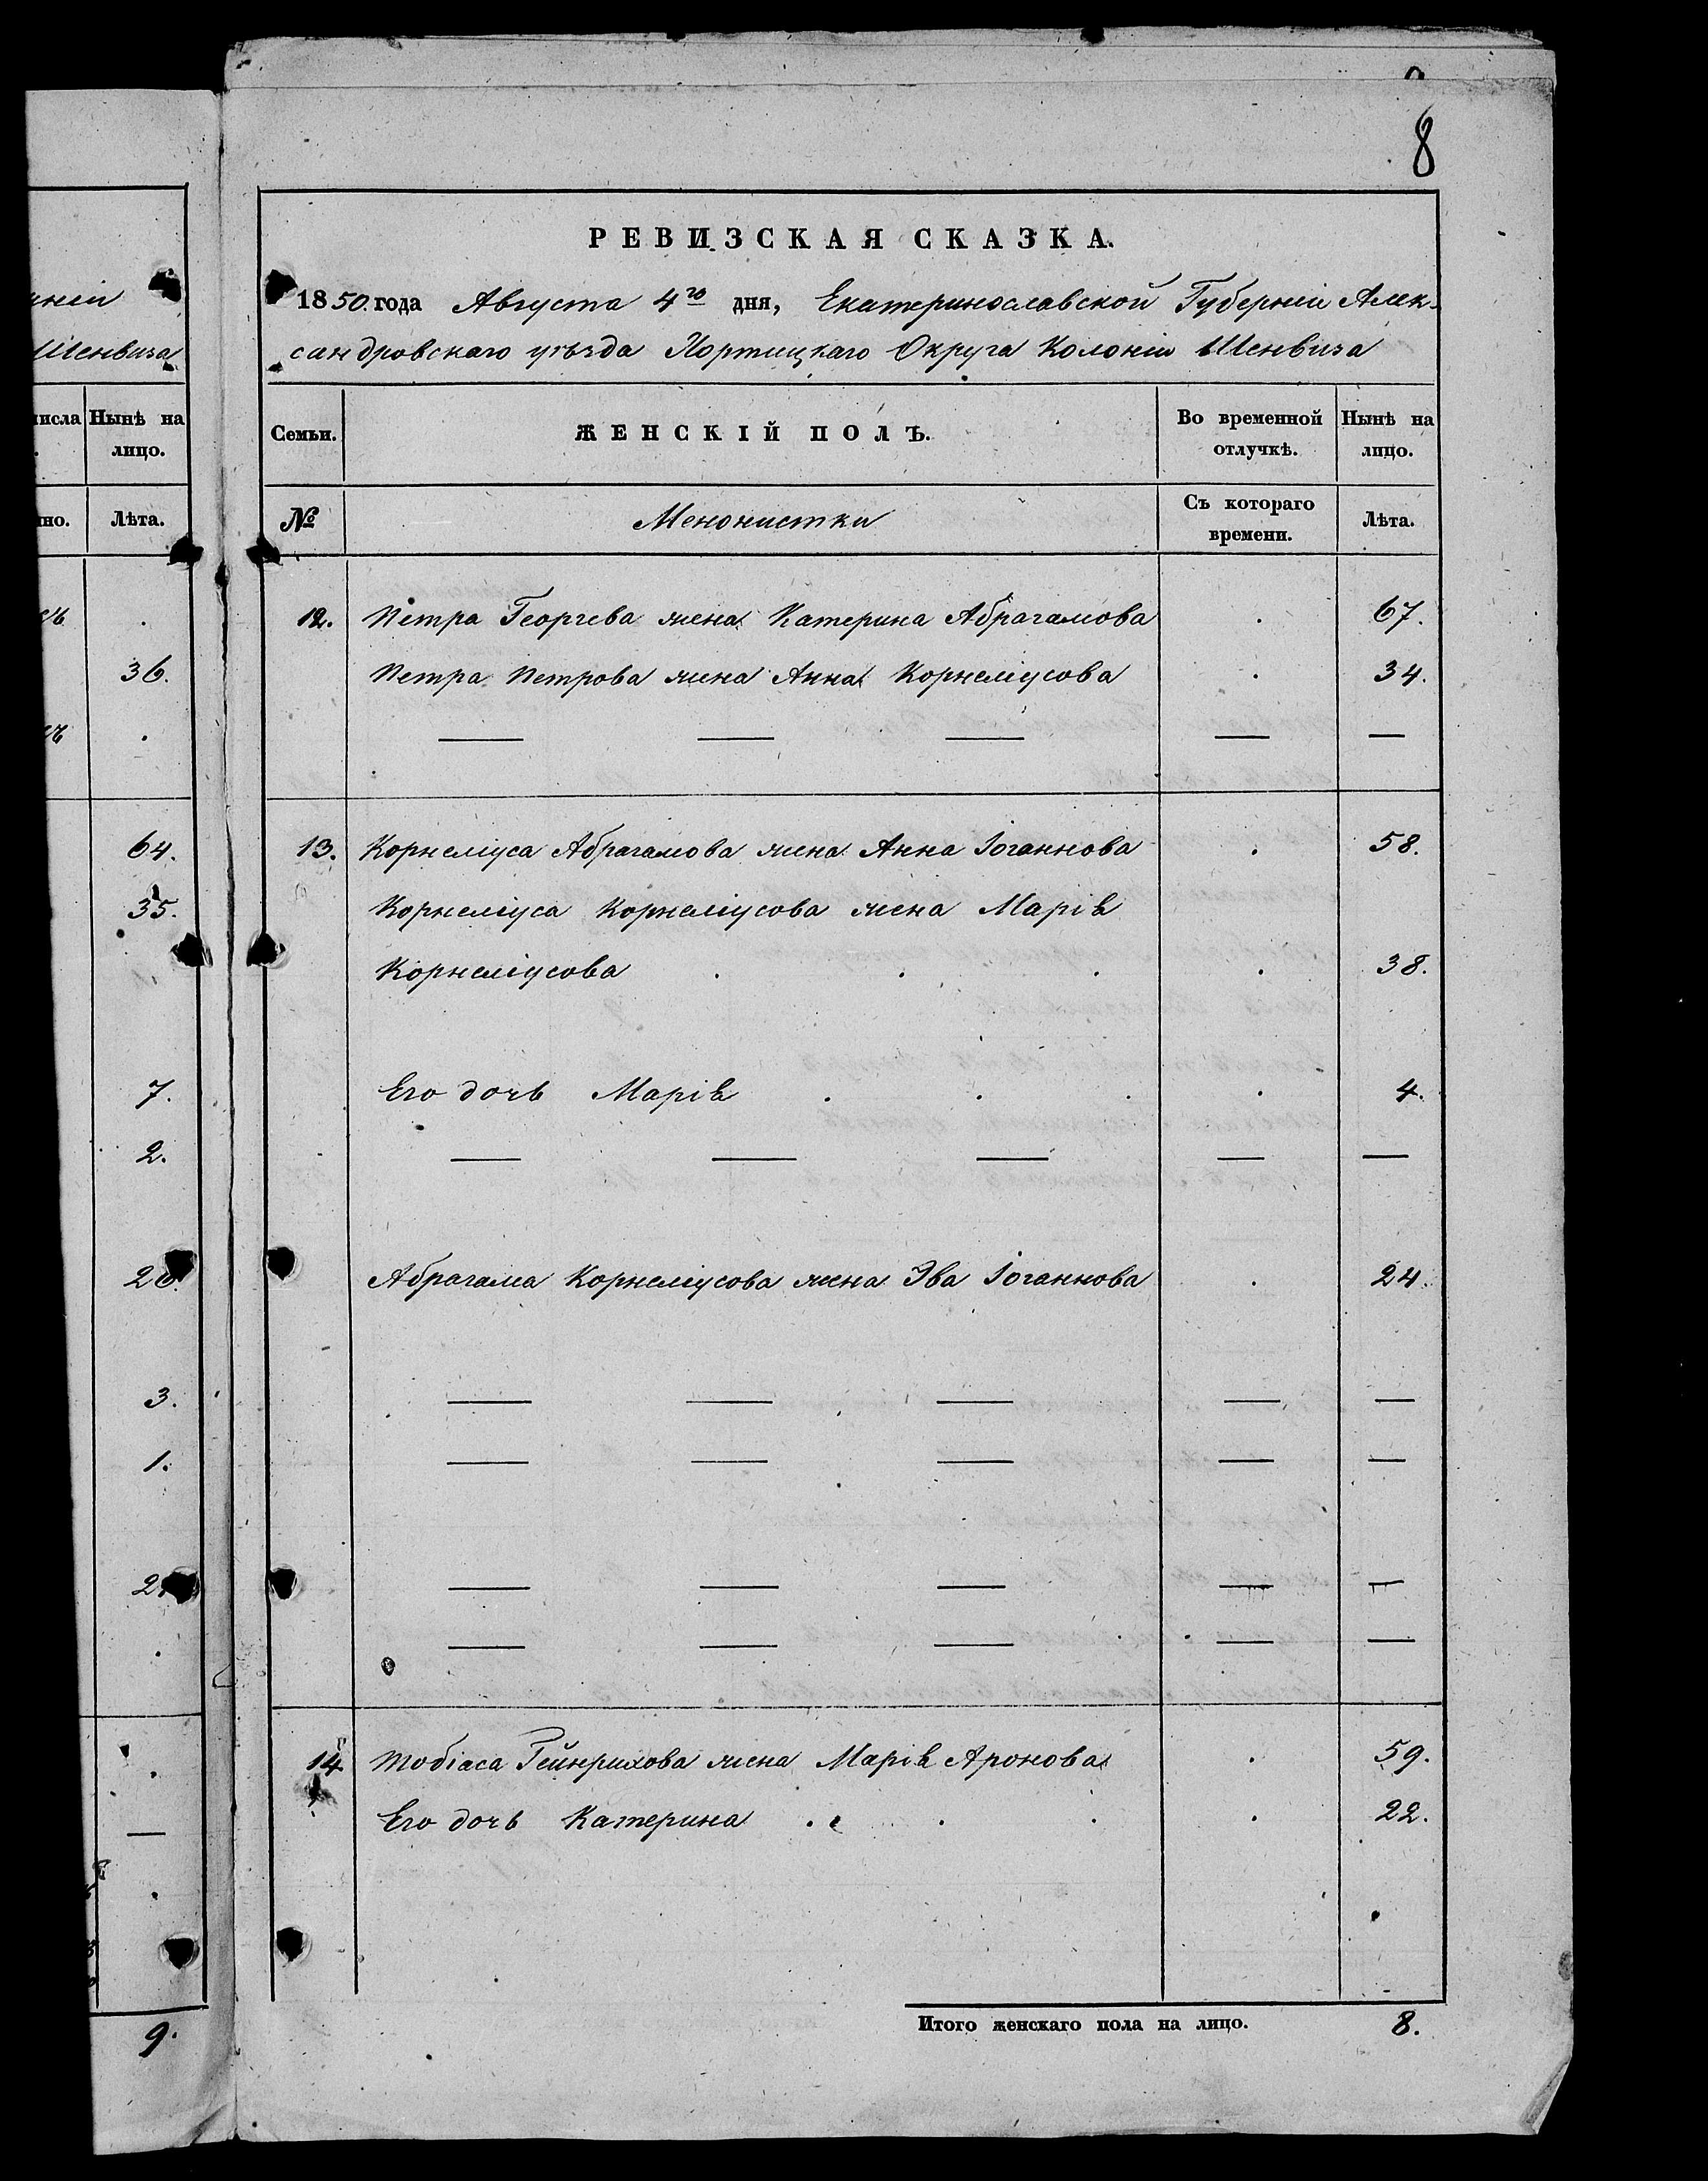 8
РЕВИЗСКАЯ СКАЗКА.
1850. года Августа 4го дня, Екатеринославской Губерніи Алек-
сандровскаго уѣзда Хортицкаго Округа Колоніи Шенвиза
Шенвиза
Нынѣ на
лицо.
Лѣта.
36.
64.
35.
7.
2.
26.
3.
1.
9.
Семьи.
ЖЕНСКІЙ ПОЛЪ.
Во временной
отлучкѣ.
Нынѣ на
лицо.
№
Менонистки
Съ котораго
времени.
Лѣта.
12. Петра Георгева жена Катерина Абрагамова . 67.
Петра Петрова жена Анна Корнеліусова . 34.
— — — — —
13. Корнеліуса Абрагамова жена Анна Іоганнова . 58.
Корнеліуса Корнеліусова жена Марія
Корнеліусова . . . . 38.
Его дочь Марія . . . . 4.
— — — — —
Абрагама Корнеліусова жена Эва Іоганнова . 24.
— — — — —
— — — — —
— — — — —
— — — — —
14. Тобіаса Гейнрихова жена Марія Аронова . 59.
Его дочь Катерина . . . . 22.
Итого женскаго пола на лицо. 8.